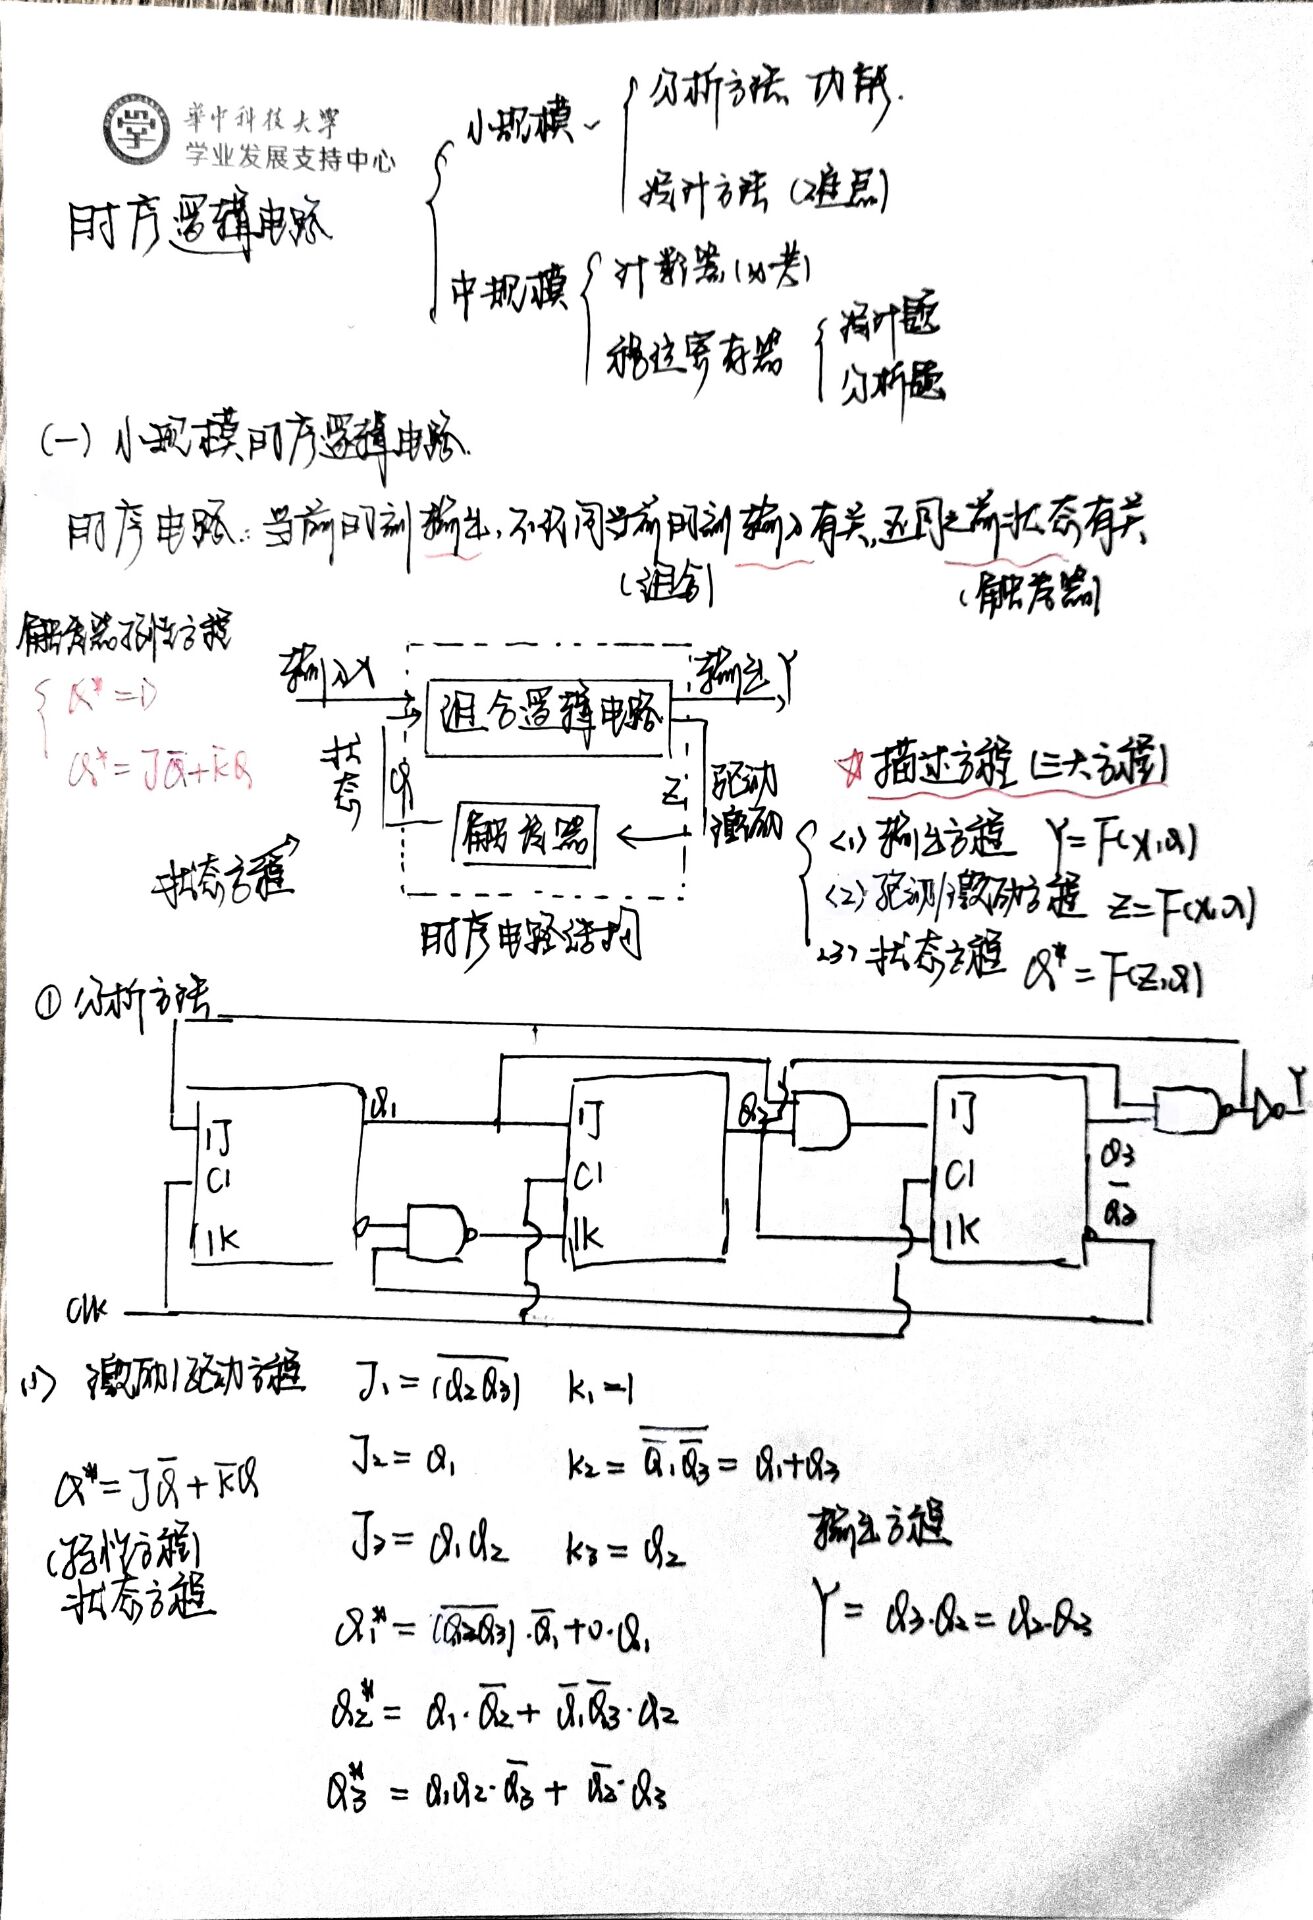 華中科技大學
学业发展支持中心
时序逻辑电路
小规模
分析方法 功能.
设计方法 (难点)
中规模
计数器 (必考)
移位寄存器
设计题
分析题
(一) 小规模时序逻辑电路.
时序电路: 当前时刻输出, 不仅同当前时刻输入有关, 还同之前状态有关
(组合)
(触发器)
触发器特性方程
Q* = D
Q* = JQ̅ + K̅Q
输入X
组合逻辑电路
输出Y
状态
Q
触发器
Z
驱动
激励
状态方程
时序电路结构
☆ 描述方程 (三大方程)
(1) 输出方程 Y = F(X,Q)
(2) 驱动/激励方程 Z = F(X,Q)
(3) 状态方程 Q* = F(Z,Q)
① 分析方法
1J
C1
1K
Q1
1J
C1
1K
Q2
1J
C1
1K
Q3
Q̅3
Y
Clk
(1) 激励/驱动方程 J1 = (Q2Q3)̅ K1 = 1
J2 = Q1 K2 = \overline{Q̅1 Q̅3} = Q1 + Q3
Q* = JQ̅ + K̅Q
(特性方程)
J3 = Q1Q2 K3 = Q2
输出方程
状态方程
Y = Q3·Q2 = Q2·Q3
Q1* = (\overline{Q2Q3})·Q̅1 + 0·Q1
Q2* = Q1·Q̅2 + Q̅1Q̅3·Q2
Q3* = Q1Q2·Q̅3 + Q̅2·Q3